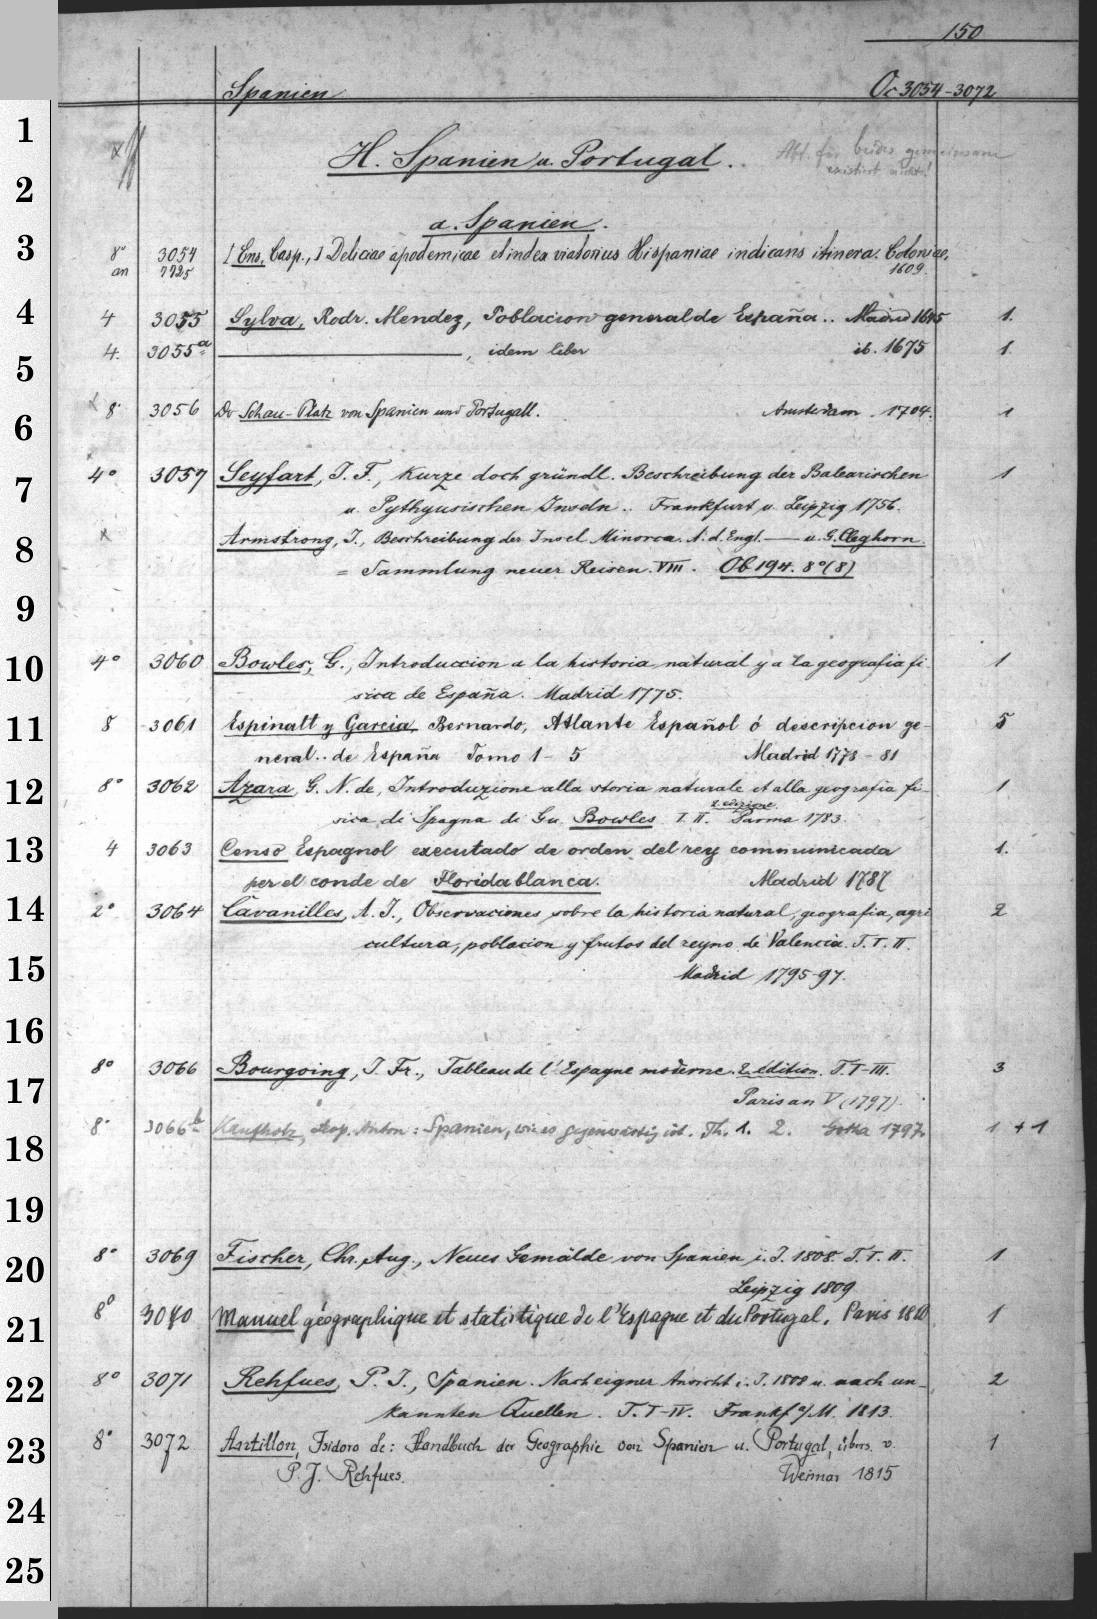 150
Spanien Oc 3054-3072
H. Spanien u. Portugal. Abt. für beides gemeinsam
existiert nicht!
a. Spanien.
8° 3054 [Ens, Casp.,] Deliciae apodemicae et index viatorius Hispaniae indicans itinera. Coloniae,
an 7725 1609.
4 3055 Sylva, Rodr. Mendez, Poblacion general de España.. Madrid 1645 1.
4. 3055a , idem liber ib. 1675 1.
x 8° 3056 Der Schau-Platz von Spanien und Portugall. Amsterdam. 1704. 1
4° 3057 Seyfart, J. F., Kurze doch gründl. Beschreibung der Balearischen 1
u. Pythyusischen Inseln.. Frankfurt u. Leipzig 1756.
x Armstrong, J., Beschreibung der Insel Minorca. A. d. Engl. — u. G. Cleghorn.
= Sammlung neuer Reisen. VIII. Ob 194. 8° (8)
4° 3060 Bowles, G., Introduccion a la historia natural y a la geografia fi- 1
sica de España. Madrid 1775.
8 3061 Espinalt y Garcia, Bernardo, Atlante Español ó descripcion ge- 5
neral.. de España Tomo 1-5 Madrid 1778-81
8° 3062 Azara, G. N. de, Introduzione alla storia naturale et alla geografia fi- 1
2 edizione.
sica di Spagna di Gu. Bowles T. II. Parma 1783.
4 3063 Censo Espagnol executado de orden del rey communicada 1.
per el conde de Floridablanca. Madrid 1787
2° 3064 Cavanilles, A. J., Observaciones sobre la historia natural, geografia, agri 2
cultura, poblacion y frutos del reyno de Valencia. T. I. II.
Madrid 1795-97.
8° 3066 Bourgoing, J. Fr., Tableau de l'Espagne moderne. 2 édition. T. I-III. 3
Paris an V (1797).
8° 3066b Kaufhold, Anton: Spanien, wie es gegenwärtig ist. Th. 1. 2. Gotha 1797. 1 + 1
8° 3069 Fischer, Chr. Aug., Neues Gemälde von Spanien i. J. 1808. T. I. II. 1
Leipzig 1809
8° 3070 Manuel géographique et statistique de l'Espagne et du Portugal. Paris 1810 1
8° 3071 Rehfues, P. J., Spanien. Nach eigner Ansicht i. J. 1808 u. nach un- 2
kannten Quellen. T. I-IV. Frankf a/M. 1813.
8° 3072 Antillon, Isidoro de: Handbuch der Geographie von Spanien u. Portugal, übers. v. 1
P. J. Rehfues. Weimar 1815
1
2
3
4
5
6
7
8
9
10
11
12
13
14
15
16
17
18
19
20
21
22
23
24
25